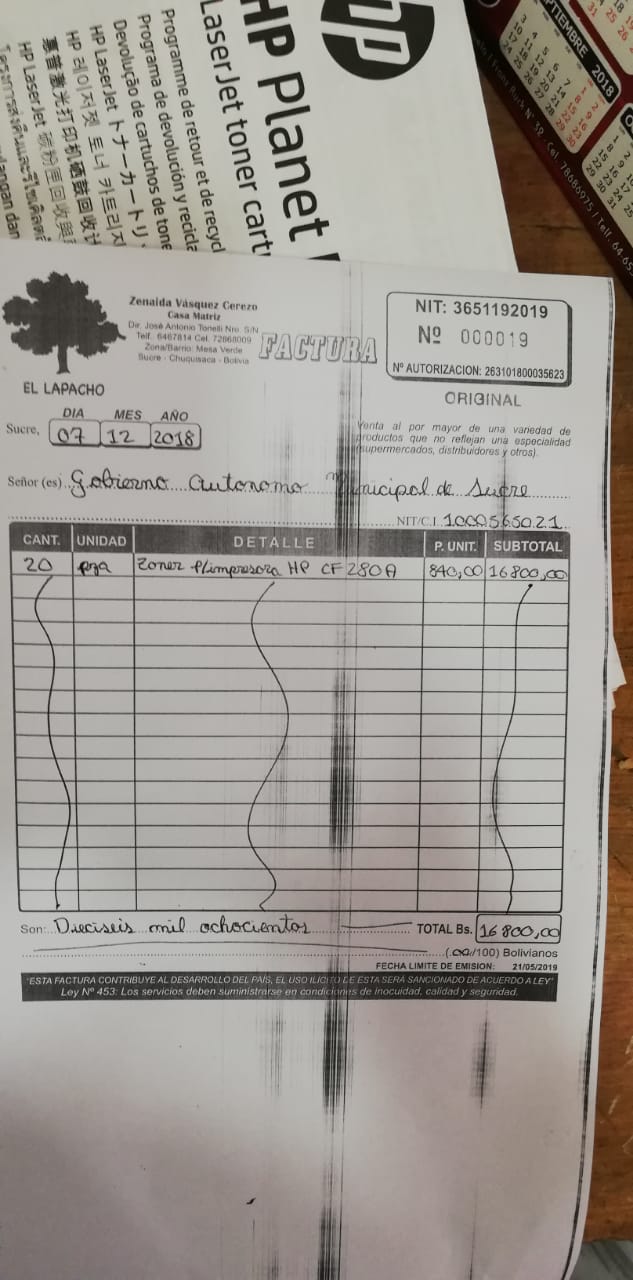 hp
HP Planet
LaserJet toner cart
Programme de retour et de recycl
Programa de devolución y recicla
Devolução de cartuchos de tone
HP LaserJet トナーカートリ
HP 레이저젯 토너 카트리지
惠普激光打印机硒鼓回收计
HP LaserJet 碳粉匣回收與
PTIEMBRE 2018
Cel. 78686975 / Telf. 64.65
Zenaida Vásquez Cerezo
Casa Matriz
Dir. José Antonio Tonelli Nro. S/N
Telf. 6467814 Cel. 72868009
Zona/Barrio: Mesa Verde
Sucre - Chuquisaca - Bolivia
FACTURA
NIT: 3651192019
Nº 000019
Nº AUTORIZACION: 263101800035623
EL LAPACHO
ORIGINAL
DIA MES AÑO
Sucre, 07 12 2018
Venta al por mayor de una variedad de
productos que no reflejan una especialidad
(supermercados, distribuidores y otros).
Señor (es) Gobierno Autonomo Municipal de Sucre
NIT/C.I. 1000565021
CANT. UNIDAD DETALLE P. UNIT. SUBTOTAL
20 pza Toner p/impresora HP CF 280A 840,00 16800,00
Son: Dieciseis mil ochocientos TOTAL Bs. 16800,00
(00/100) Bolivianos
FECHA LIMITE DE EMISION: 21/05/2019
"ESTA FACTURA CONTRIBUYE AL DESARROLLO DEL PAÍS, EL USO ILICITO DE ESTA SERÁ SANCIONADO DE ACUERDO A LEY"
Ley Nº 453: Los servicios deben suministrarse en condiciones de inocuidad, calidad y seguridad.